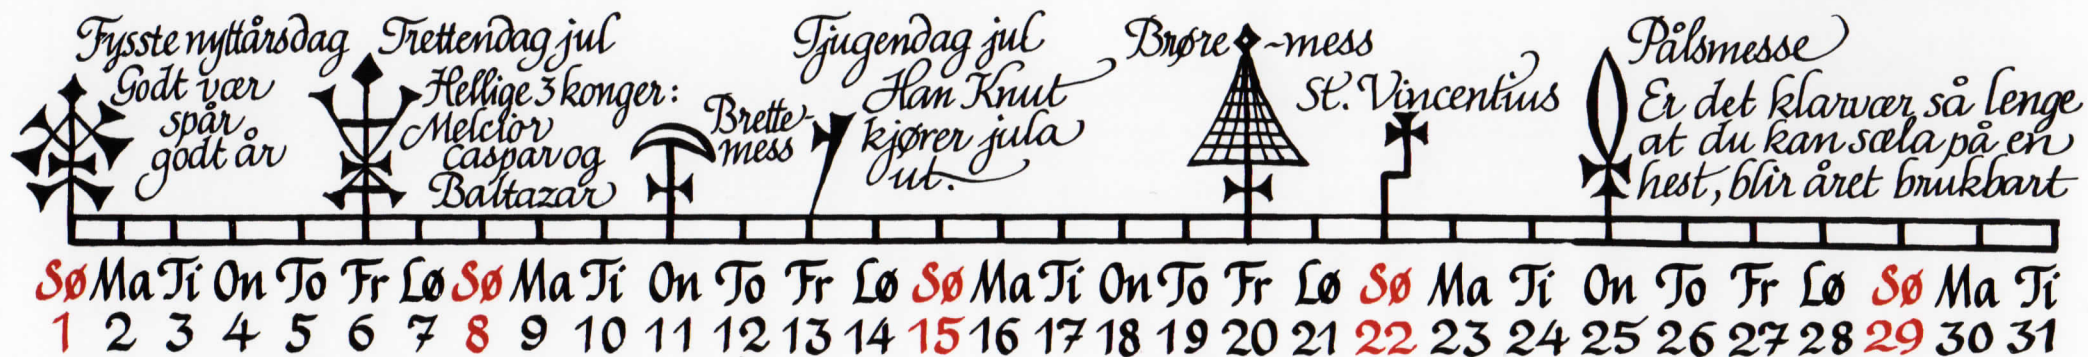 Fysste nyttårsdag
Godt vær
spår
godt år
Trettendag jul
Hellige 3 konger:
Melcior
Caspar og
Baltazar
Brette-
mess
Tjugendag jul
Han Knut
kjører jula
ut.
Brøre-mess
St. Vincentius
Pålsmesse
Er det klarvær så lenge
at du kan sæla på en
hest, blir året brukbart
Sø Ma Ti On To Fr Lø Sø Ma Ti On To Fr Lø Sø Ma Ti On To Fr Lø Sø Ma Ti On To Fr Lø Sø Ma Ti
1 2 3 4 5 6 7 8 9 10 11 12 13 14 15 16 17 18 19 20 21 22 23 24 25 26 27 28 29 30 31